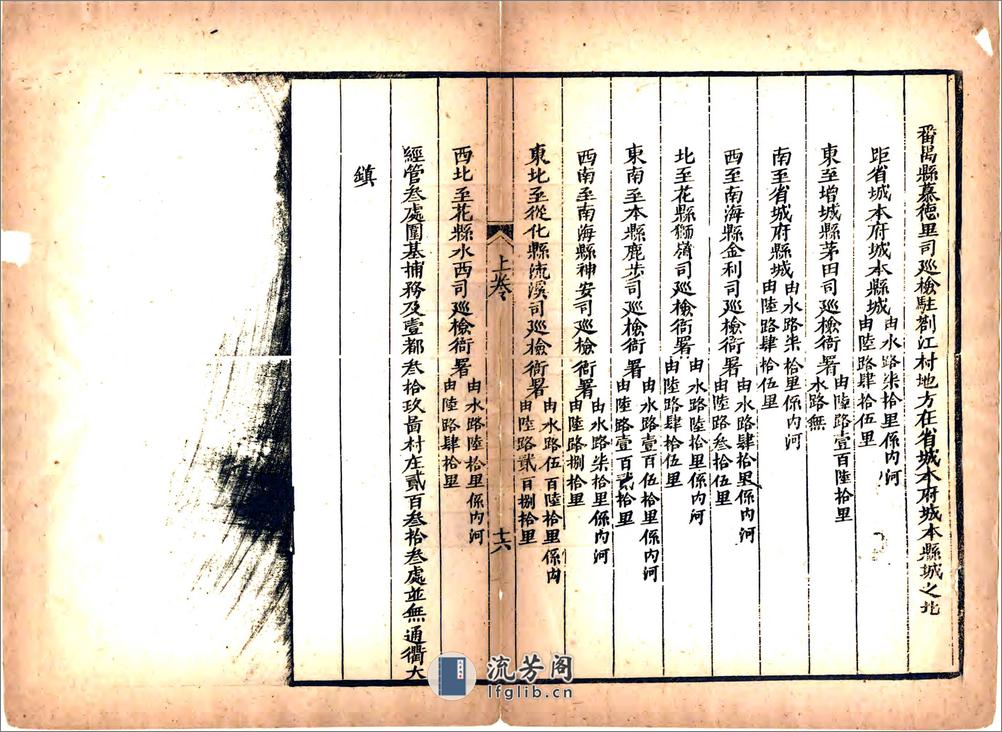 番禺縣慕德里司巡檢駐劄江村地方在省城本府城本縣城之北
距省城本府城本縣城
由水路柒拾里係內河
由陸路肆拾伍里
東至增城縣茅田司巡檢衙署
由陸路壹百陸拾里
水路無
南至省城府縣城
由水路柒拾里係內河
由陸路肆拾伍里
西至南海縣金利司巡檢衙署
由水路肆拾里係內河
由陸路叁拾伍里
北至花縣獅嶺司巡檢衙署
由水路陸拾里係內河
由陸路肆拾伍里
東南至本縣鹿步司巡檢衙署
由水路壹百伍拾里係內河
由陸路壹百貳拾里
西南至南海縣神安司巡檢衙署
由水路柒拾里係內河
由陸路捌拾里
東北至從化縣流溪司巡檢衙署
由水路伍百陸拾里係內河
由陸路貳百捌拾里
上卷
十六
西北至花縣水西司巡檢衙署
由水路陸拾里係內河
由陸路肆拾里
經管叁處圍基捕務及壹都叁拾玖啚村庄貳百叁拾叁處並無通衢大
鎮
流芳阁
lfglib.cn